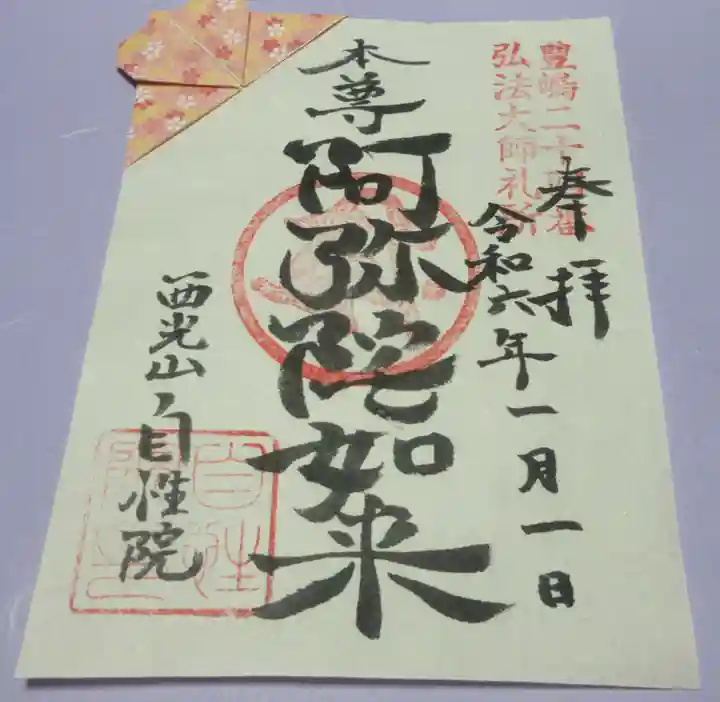 奉拝
豊嶋二十四番
弘法大師礼所
令和六年一月一日
本尊
阿弥陀如来
西光山
自性院
自性
院